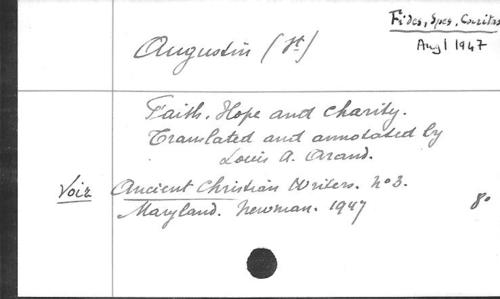 Fides, Spes, Caritas
Aug 1947
Augustin (St)
Faith, Hope and Charity.
Translated and annotated by
Louis A. Arand.
Voir Ancient Christian Writers. no 3.
Maryland. Newman. 1947
8º